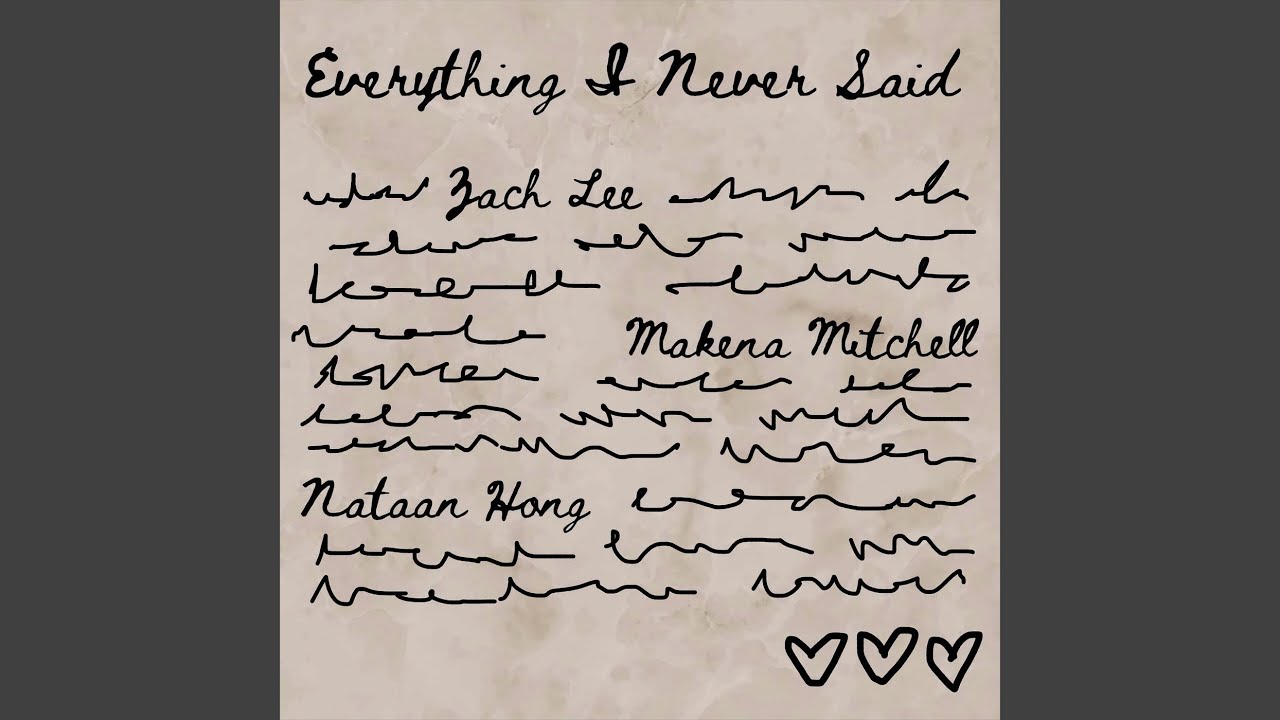 Everything I Never Said
Zach Lee
Makena Mitchell
Nataan Hong